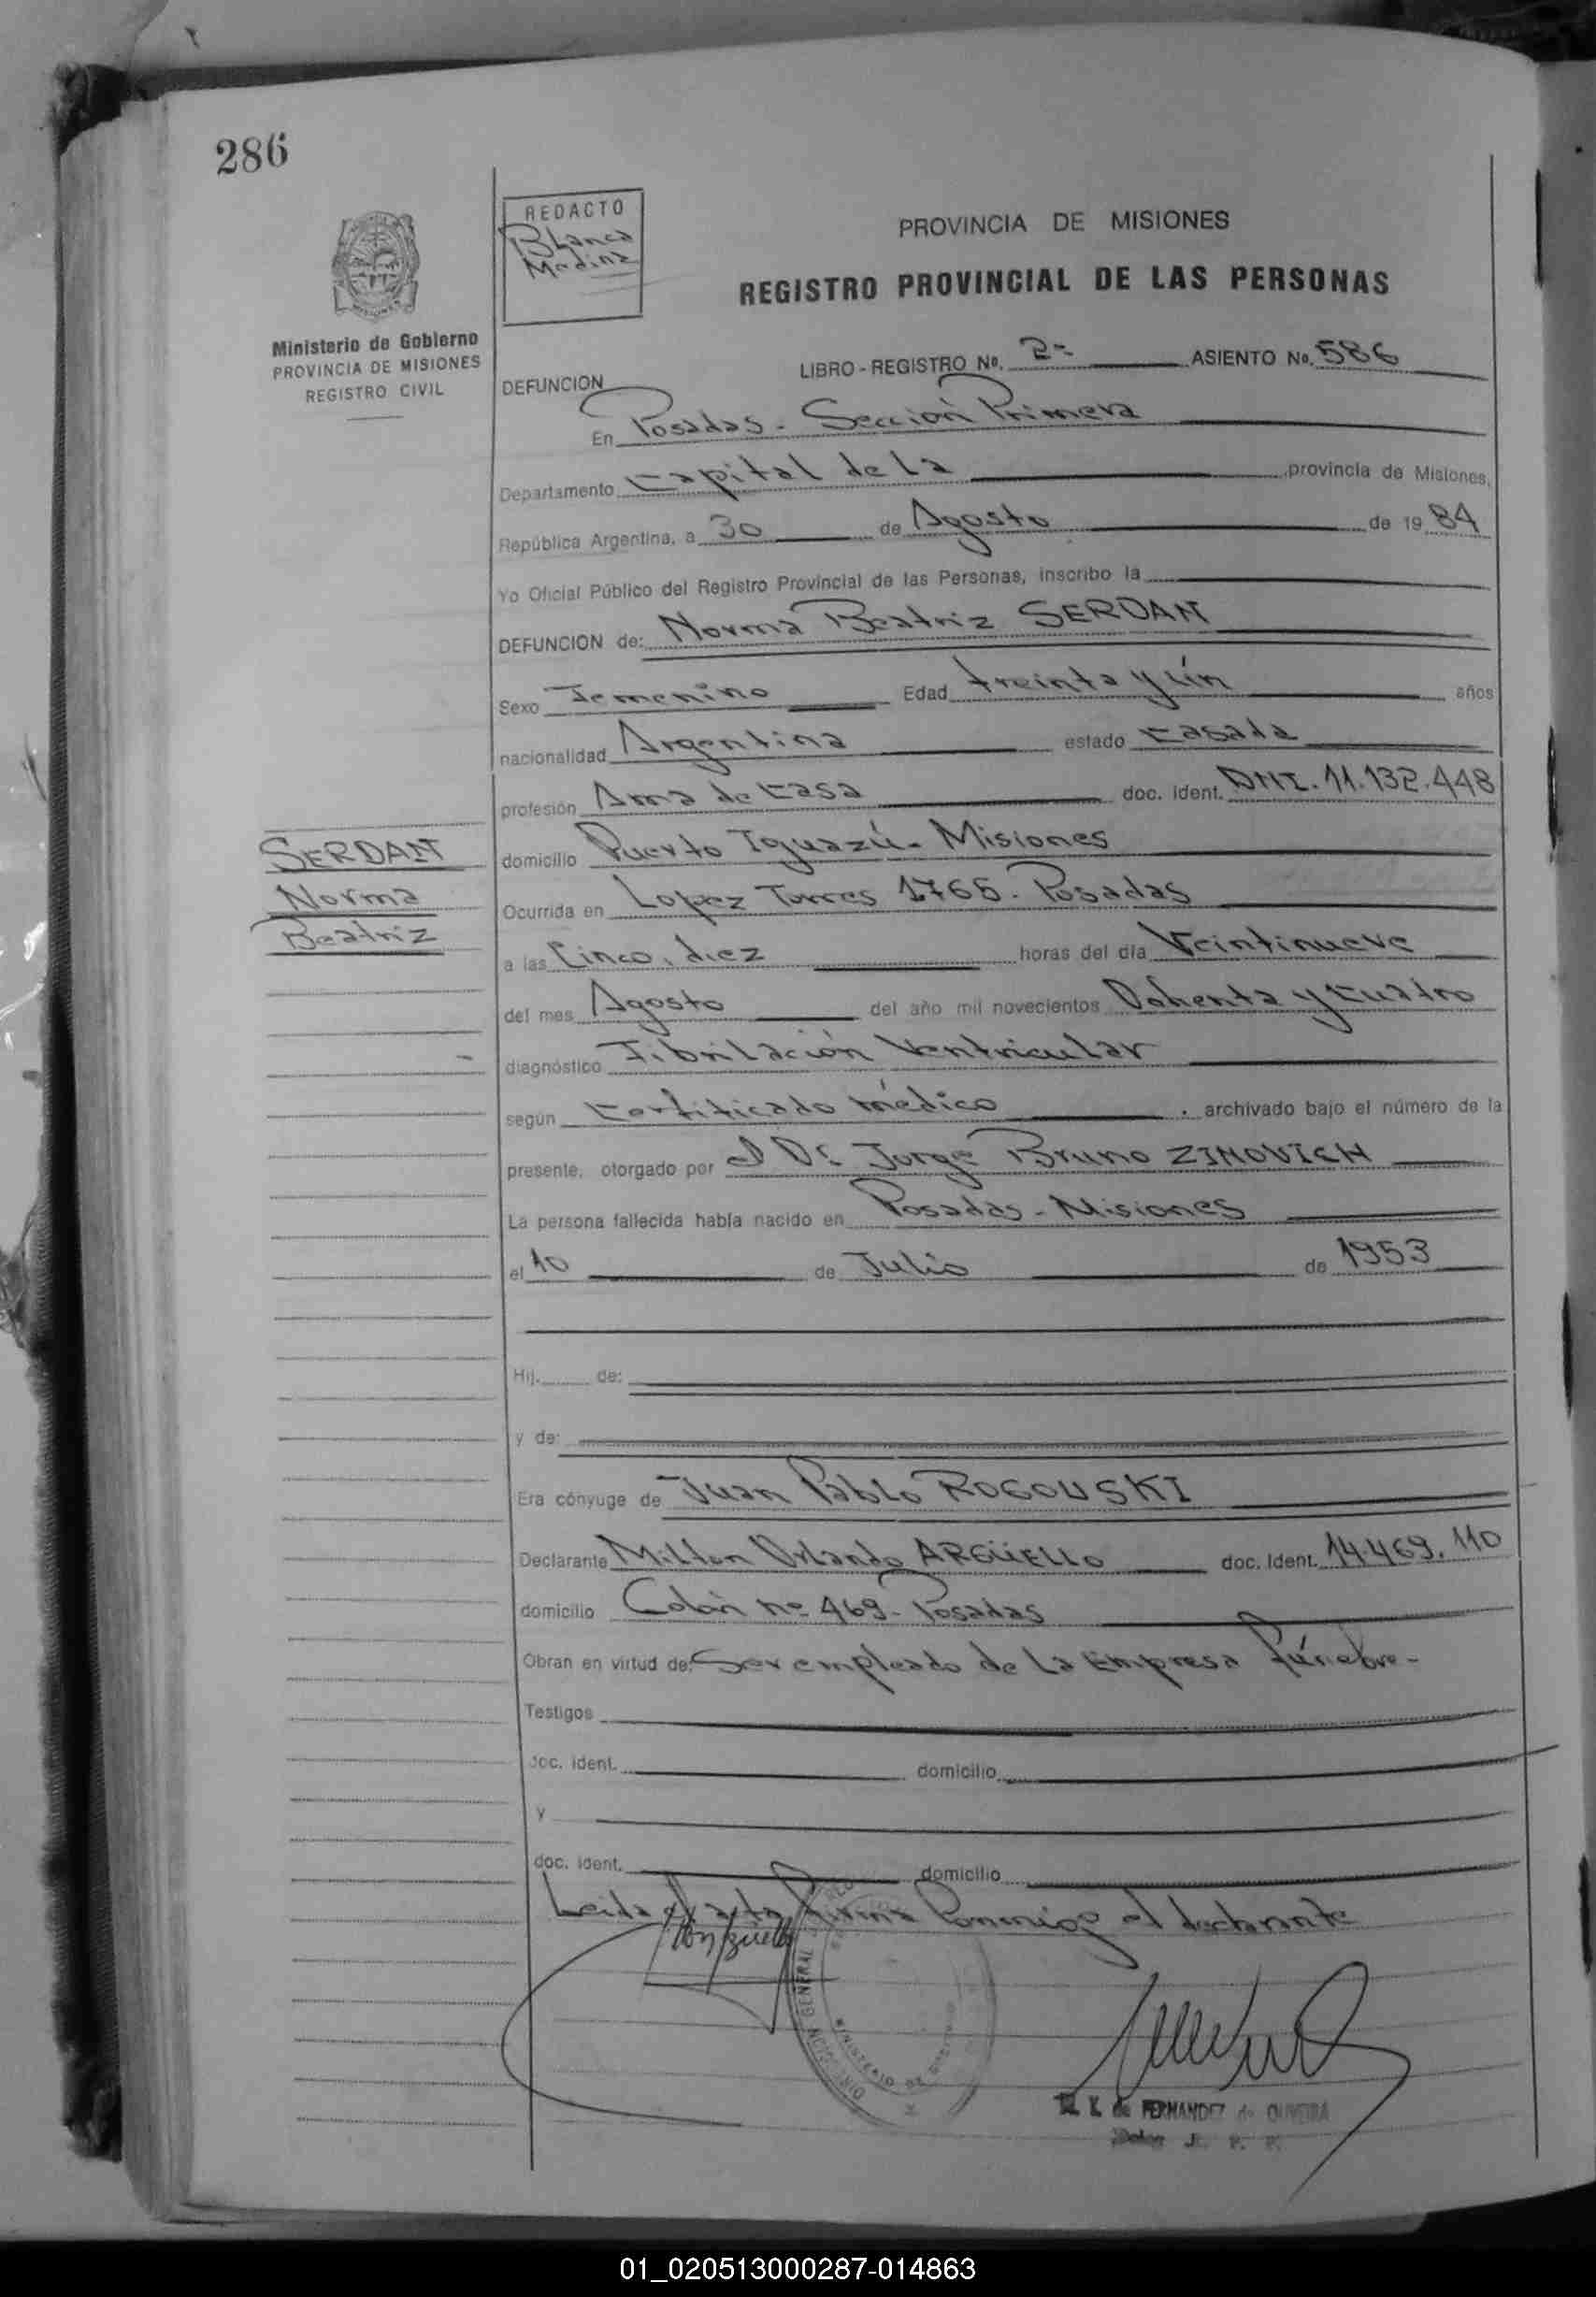 286
REDACTO
Blanca
Medina
PROVINCIA DE MISIONES
REGISTRO PROVINCIAL DE LAS PERSONAS
Ministerio de Gobierno
PROVINCIA DE MISIONES
REGISTRO CIVIL
LIBRO - REGISTRO No. 2- ASIENTO No. 586
DEFUNCION
En Posadas - Sección Primera
Departamento Capital de La provincia de Misiones,
República Argentina, a 30 de Agosto de 19 84
Yo Oficial Público del Registro Provincial de las Personas, inscribo la
DEFUNCION de: Norma Beatriz SERDAN
Sexo Femenino Edad treinta y ún años
nacionalidad Argentina estado Casada
profesión Ama de Casa doc. ident. DNI. 11.132.448
SERDAN
Norma
Beatriz
domicilio Puerto Iguazú - Misiones
Ocurrida en Lopez Torres 1765 - Posadas
a las Cinco, diez horas del día Veintinueve
del mes Agosto del año mil novecientos Ochenta y Cuatro
diagnóstico Fibrilación Ventricular
según Certificado médico . archivado bajo el número de la
presente, otorgado por el Dr. Jorge Bruno ZINOVICH
La persona fallecida había nacido en Posadas - Misiones
el 10 de Julio de 1953
Hij. de:
y de:
Era cónyuge de Juan Pablo ROGOUSKI
Declarante Milton Orlando ARGÜELLO doc. Ident. 14.469.110
domicilio Colón nº 469 - Posadas
Obran en virtud de: Ser empleado de La Empresa fúnebre -
Testigos
doc. ident. domicilio
y
doc. ident. domicilio
Leida el acta, firma Conmigo el declarante
DIRECCION GENERAL
MINISTERIO DE
de FERNANDEZ de OLIVEIRA
01_020513000287-014863